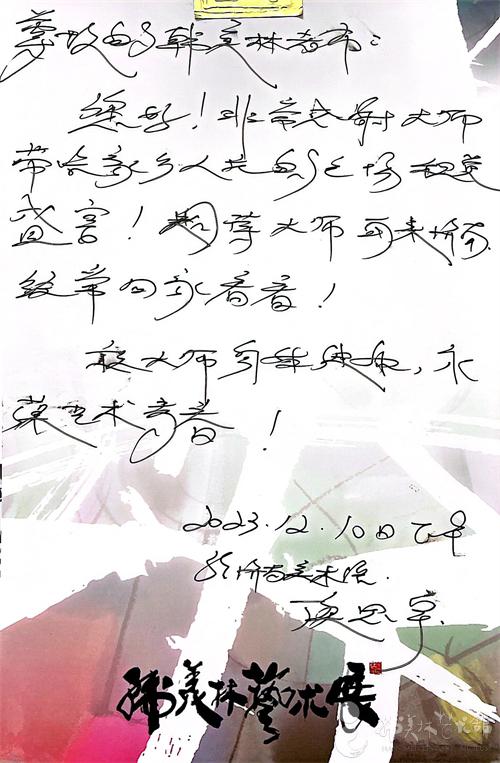 尊敬的韩美林老师:
您好!非常感谢大师
带给家乡人民的这场视觉
盛宴!期荐大师再来济南
经常回家看看!
祝大师身体健康,永
葆艺术青春!
2023.12.10日下午
于济南美术馆.
韩美林艺术展